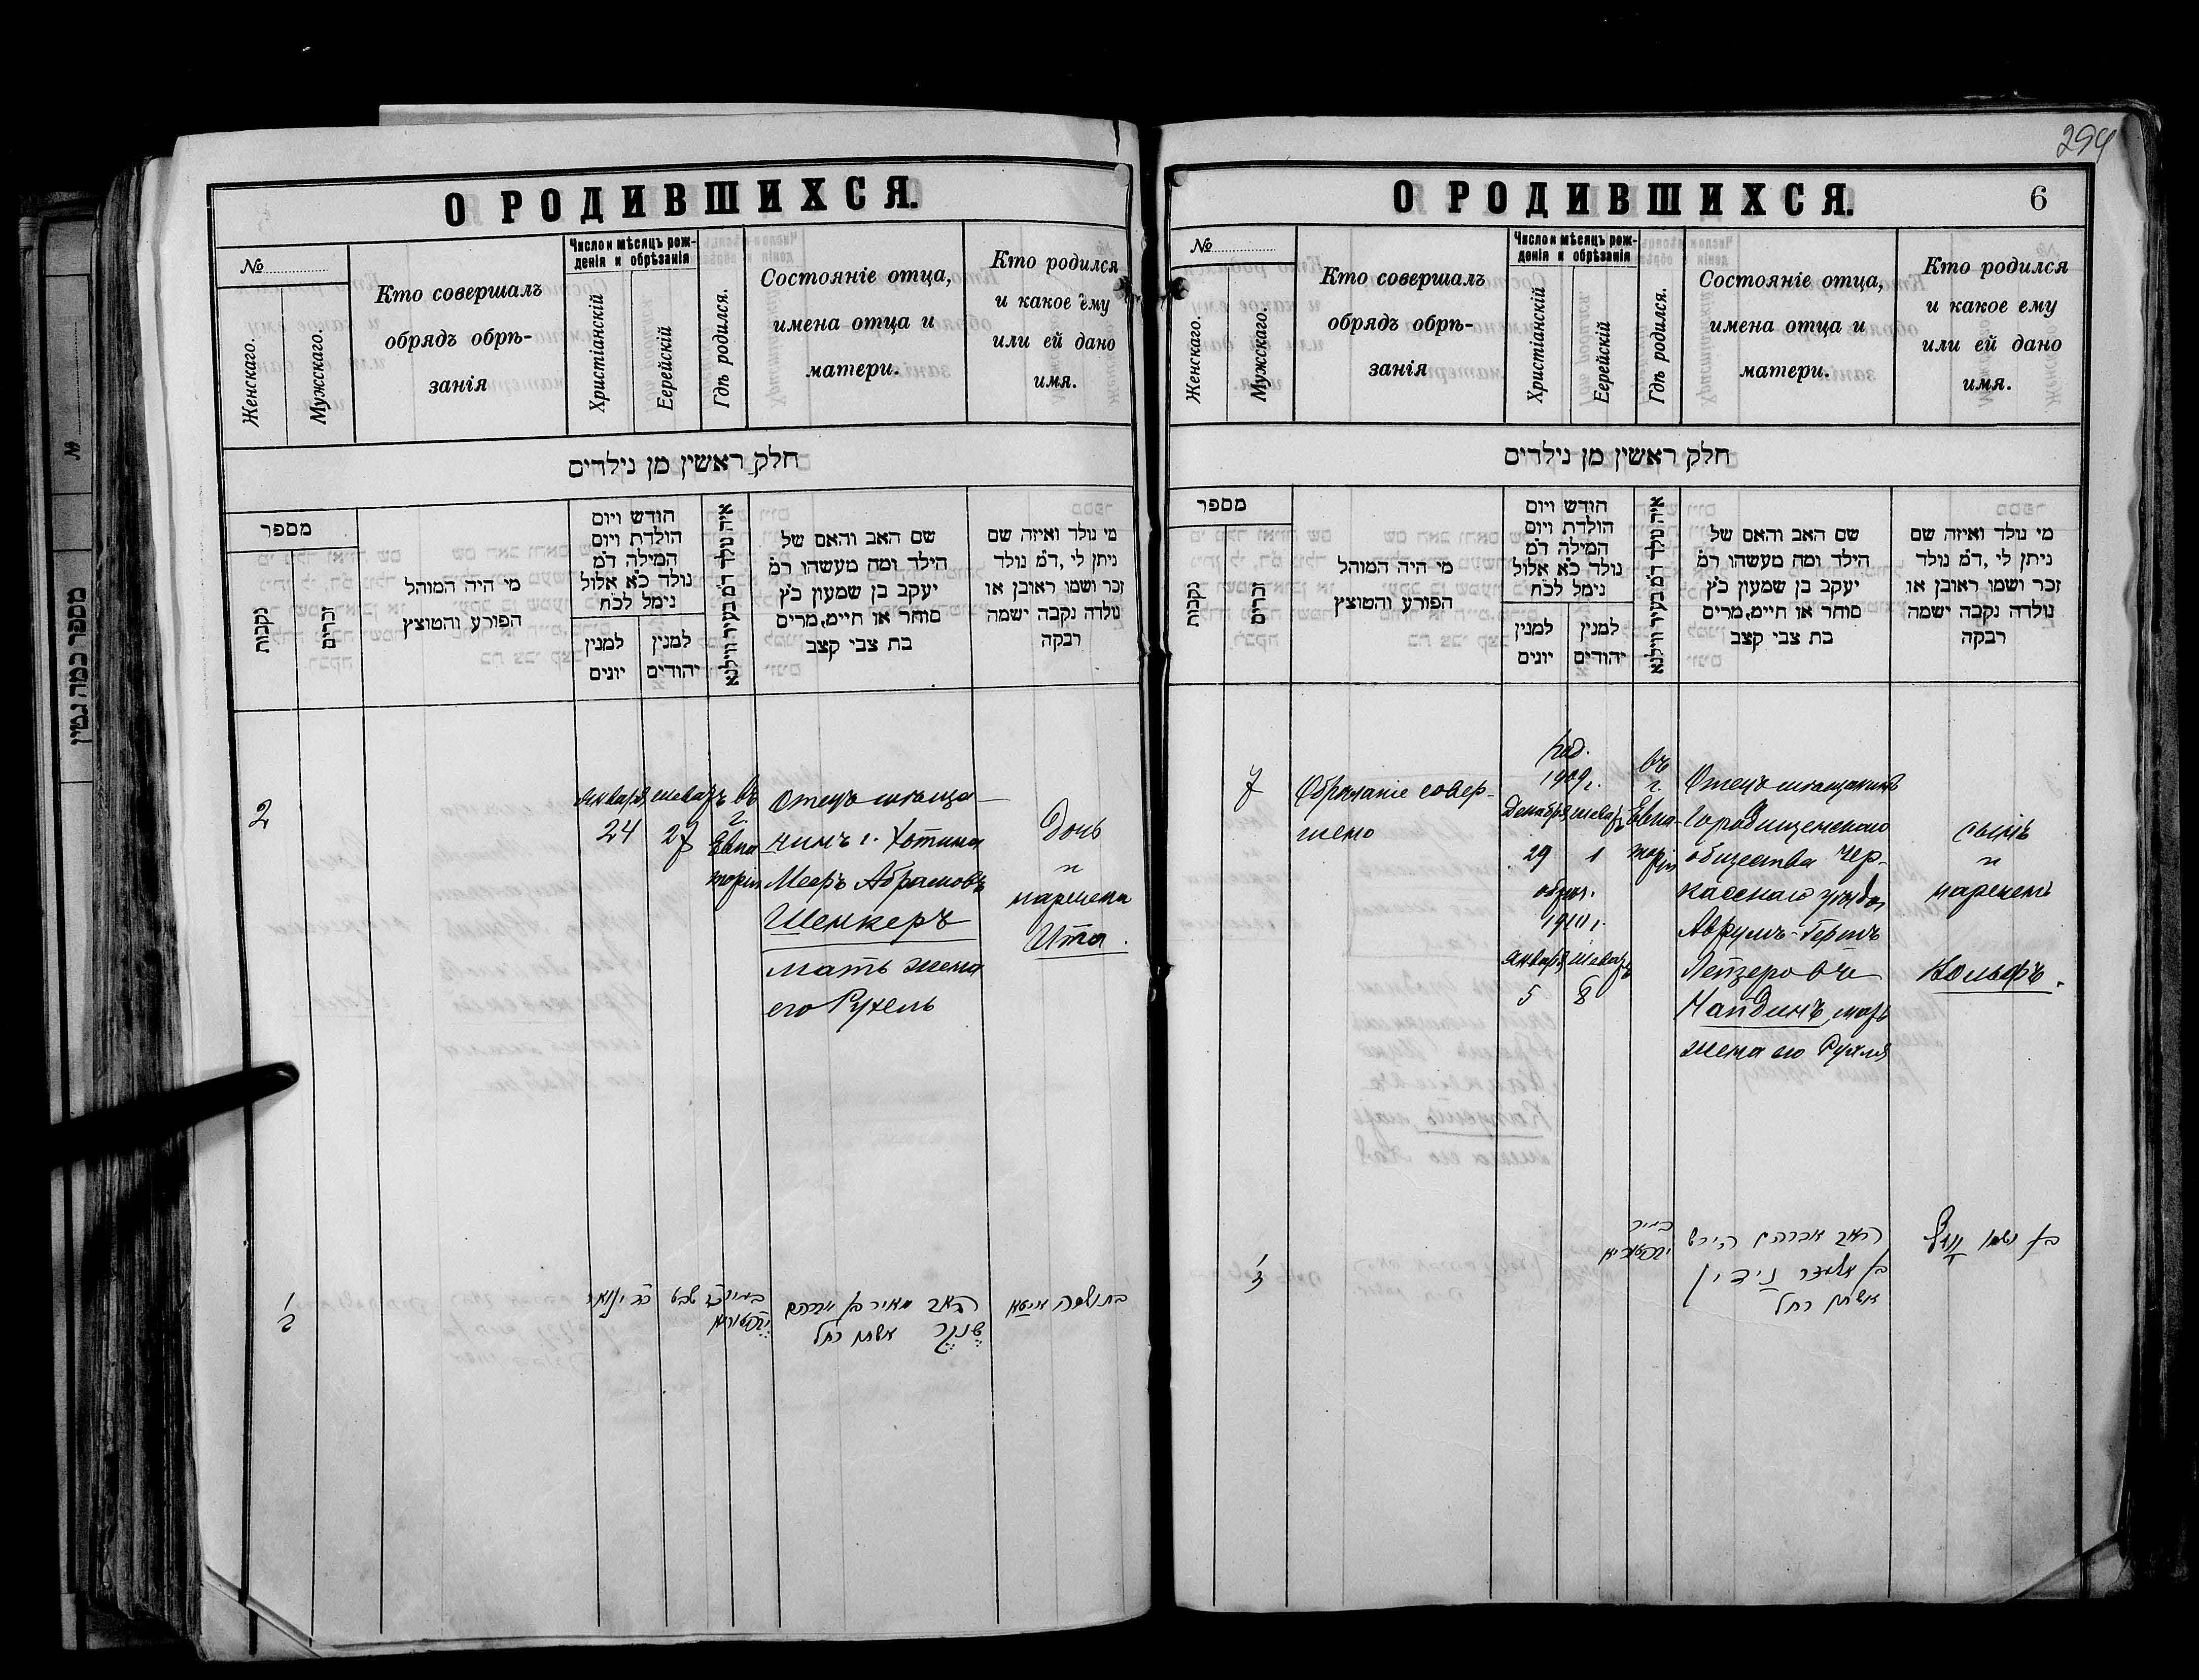 О РОДИВШИХСЯ.
№
Женскаго.
Мужскаго.
Кто совершалъ
обрядъ обрѣ-
занія
Число и мѣсяцъ рож-
денія и обрѣзанія
Христіанскій
Еврейскій
Гдѣ родился.
Состояніе отца,
имена отца и
матери.
Кто родился
и какое ему
или ей дано
имя.
חלק ראשין מן נילדים
מספר
נקבות
זכרים
מי היה המוהל
הפורע והטוצץ
חודש ויום
הולדת ויום
המילה ד״מ
נולד כ״א אלול
נימל לכ״ח
למנין
יונים
למנין
יהודים
איה נולד ד״מ בעיר ווילנא
שם האב והאם של
הילד ומה מעשהו ר״מ
יעקב בן שמעון כ״ץ
סוחר או חיים, מרים
בת צבי קצב
מי נולד ואיזה שם
ניתן לי, ד״מ נולד
זכר ושמו ראובן או
נולדה נקבה ישמה
רבקה
2
Января
24
шеватъ
27
въ
г.
Евпа
торіи
Отецъ мѣща-
нинъ г. Хотина
Мееръ Абрамовъ
Шенкеръ
мать жена
его Рухель
Дочь
и
наречена
Ита.
האב מאיר בן אברהם
שענקער אשתו רחל
בת ושמה איטא
294
О РОДИВШИХСЯ.
6
№
Женскаго.
Мужскаго.
Кто совершалъ
обрядъ обрѣ-
занія
Число и мѣсяцъ рож-
денія и обрѣзанія
Христіанскій
Еерейскій
Гдѣ родился.
Состояніе отца,
имена отца и
матери.
Кто родился
и какое ему
или ей дано
имя.
חלק ראשין מן נילדים
מספר
נקבות
זכרים
מי היה המוהל
הפורע והטוצץ
חודש ויום
הולדת ויום
המילה ד״מ
נולד כ״א אלול
נימל לכ״ח
למנין
יונים
למנין
יהודים
איה נולד ד״מ בעיר ווילנא
שם האב והאם של
הילד ומה מעשהו ר״מ
יעקב בן שמעון כ״ץ
סוחר או חיים, מרים
בת צבי קצב
מי נולד ואיזה שם
ניתן לי, ד״מ נולד
זכר ושמו ראובן או
נולדה נקבה ישמה
רבקה
7
Обрѣзаніе совер-
шено
род.
1909 г.
Декабря шеватъ
29 1
обрѣз.
1910 г.
Января шеватъ
5 8
въ
г.
Евпа-
торіи
Отецъ мѣщанинъ
Городищенскаго
общества Чер-
касскаго уѣзда
Аврумъ-Гершъ
Лейзеровъ
Найдинъ, мать
жена его Рухля
сынъ
и
нареченъ
Вольфъ.
האב אברהם הירש
בן אלעזר נידין
אשתו רחל
בן ושמו וואלף